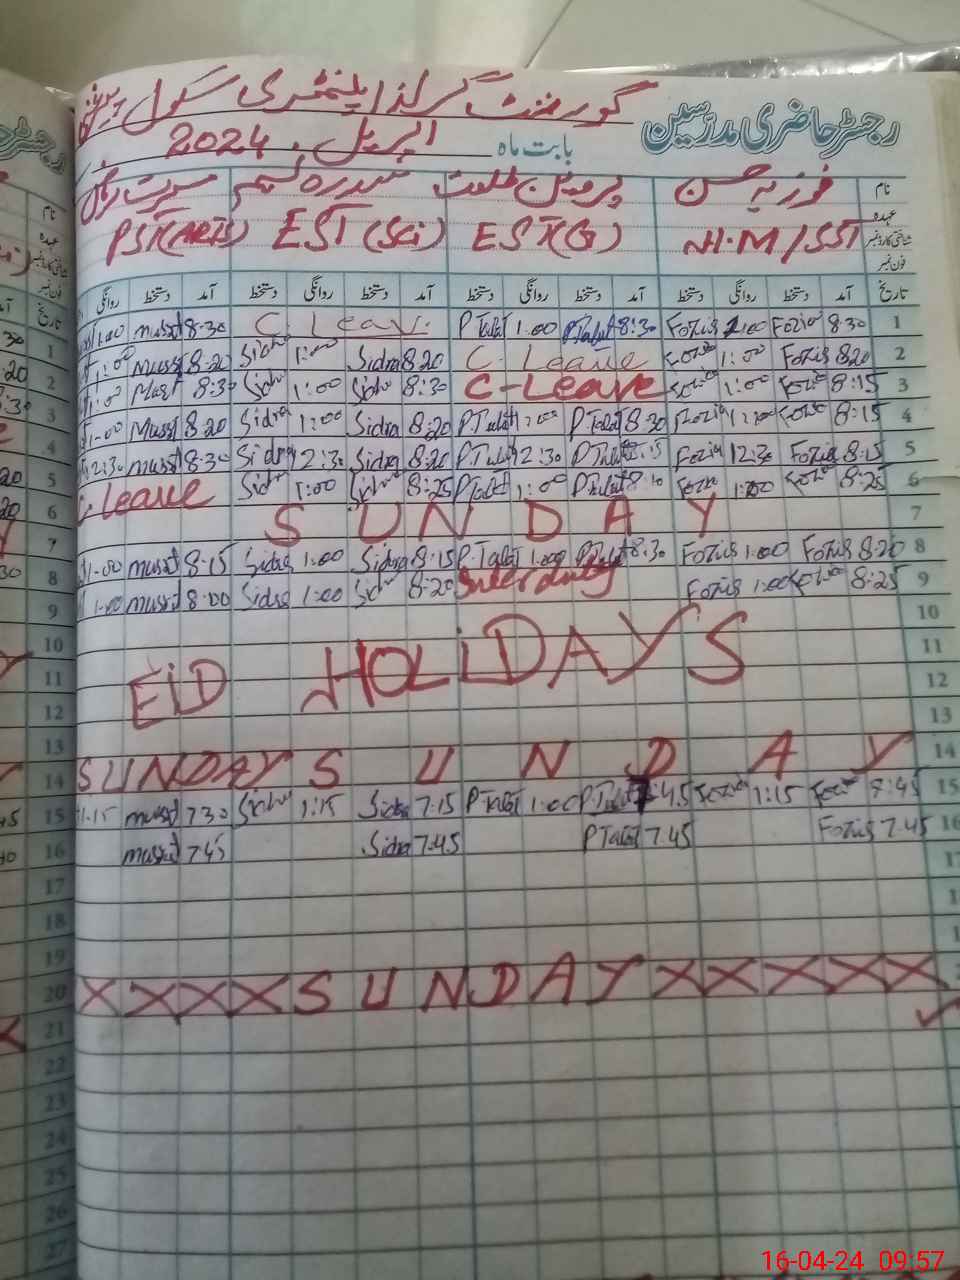 رجسٹر حاضری مدرسین گورنمنٹ گرلز ایلیمنٹری سکول
بابت ماہ اپریل 2024
نام فوزیہ حسن پروین طلعت سدرہ نسیم مسرت
عہدہ H.M/SST EST(G) EST (Sci) PST(ARTS)
شناختی کارڈ نمبر
فون نمبر
تاریخ آمد دستخط روانگی دستخط آمد دستخط روانگی دستخط آمد دستخط روانگی دستخط آمد دستخط روانگی
1:00 Mussrt 8-30 C. Leave. P Talat 1:00 P Talat 8:30 Fozia 1:00 Fozia 8 30 1
1:00 Mussrt 8-20 Sidra 1:00 Sidra 8 20 C. Leave Fozia 1:00 Fozia 8 20 2
1:00 Musrt 8:30 Sidra 1:00 Sidra 8:30 C-Leave Fozia 1:00 Fozia 8:15 3
1-00 Mussrt 8-20 Sidra 1:00 Sidra 8:20 P Talat 1:00 P Talat 8 30 Fozia 1:00 Fozia 8-15 4
12:30 Mussrt 8-30 Sidra 12:30 Sidra 8:20 P Talat 12:30 P Talat 8:15 Fozia 12:30 Fozia 8:15 5
C-leave Sidra 1:00 Sidra 8:25 P Talat 1:00 P Talat 8:10 Fozia 1:00 Fozia 8:25 6
SUNDAY 7
1-00 Mussrt 8-15 Sidra 1:00 Sidra 8:15 P-Talat 1:00 P Talat 8:30 Fozia 1:00 Fozia 8:20 8
1:00 Mussrt 8:00 Sidra 1:00 Sidra 8-20 Fozia 1:00 Fozia 8:25 9
10
11
EID HOLIDAYS 12
13
SUNDAY SUNDAY 14
1:15 Mussrt 7 30 Sidra 1:15 Sidra 7:15 P Talat 1:00 P Talat 7:45 Fozia 1:15 Fozia 7:45 15
Mussrt 7 45 Sidra 7:45 P Talat 7:45 Fozia 7.45 16
17
18
19
20 X X X X SUNDAY X X X X X
21
22
23
24
25
26
27
16-04-24 09:57